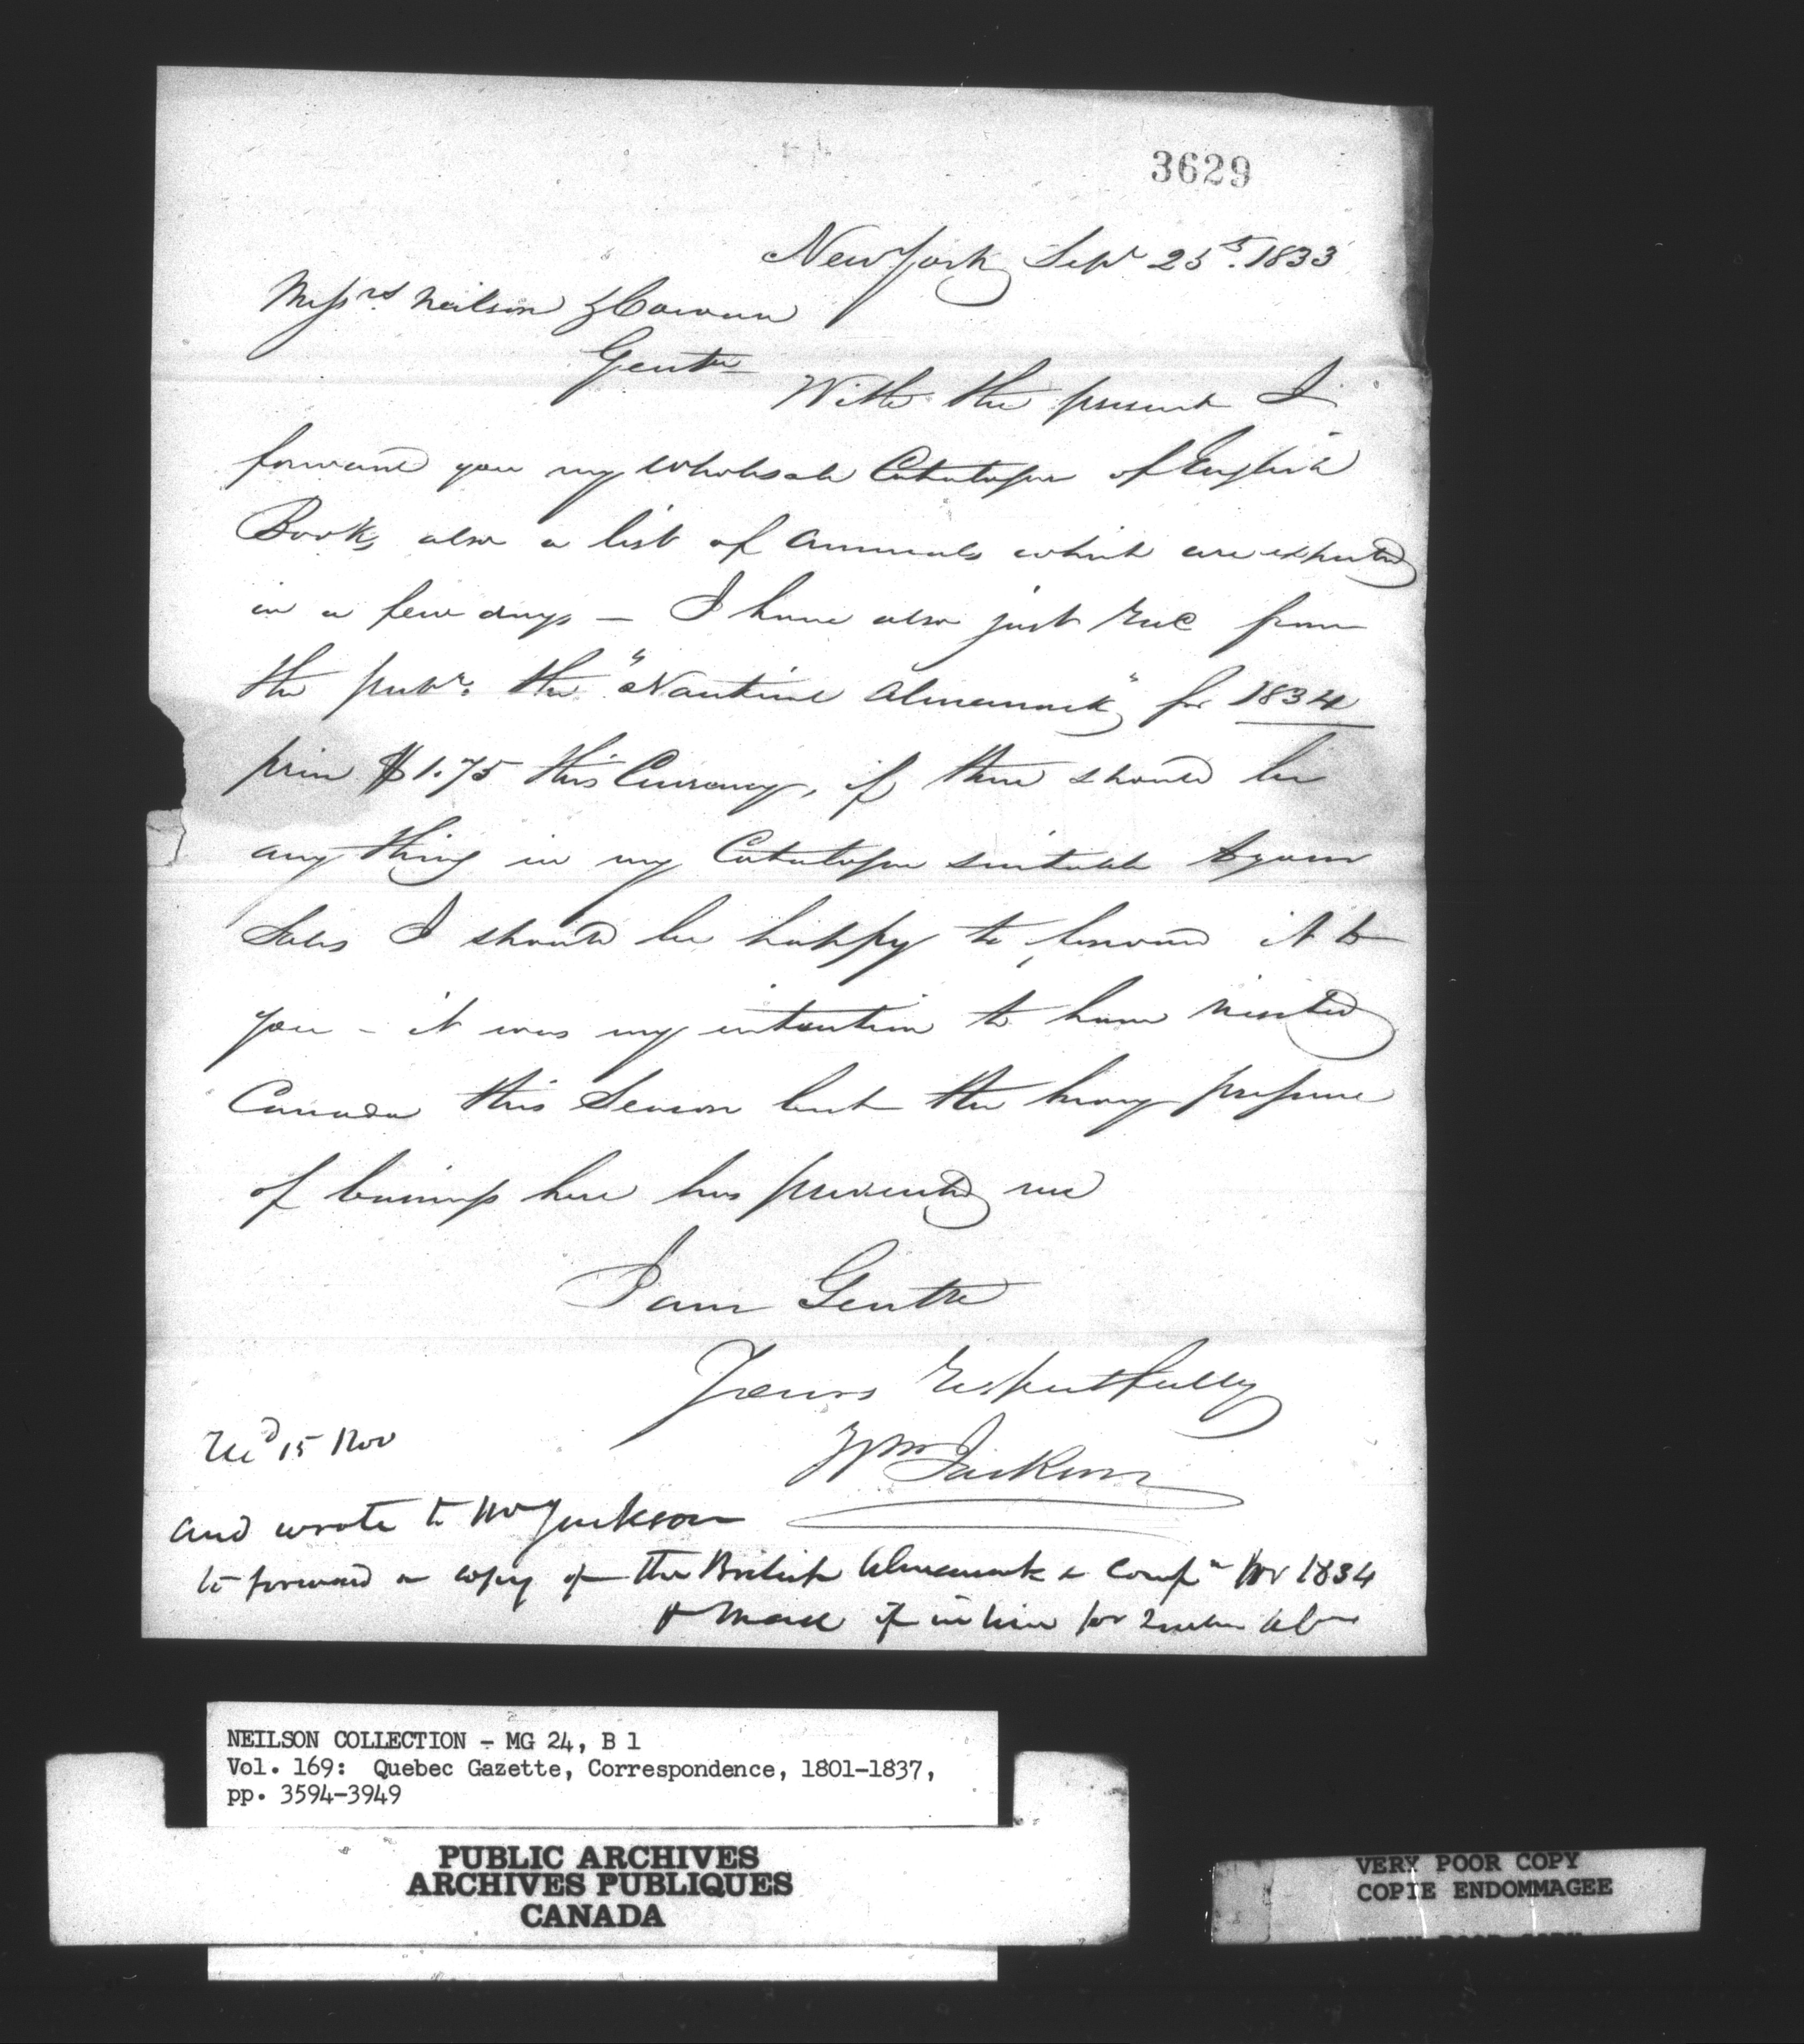 3629
New York Sepr 25th. 1833
Messrs. Neilson & Cowan
Gentn
With the present I
forward you my wholesale Catalogue of English
Books, also a list of Annuals which are expected
in a few days – I have also just Recd from
the pubr. the "Nautical Almanack" for 1834
price $1.75 this Currency, if there should be
any thing in my Catalogue suitable to your
Sales I should be happy to forward it to
you – it was my intention to have visited
Canada this Season but the heavy pressure
of business here has prevented me
I am Gentn
Yours Respectfully
Wm Jackson
Recd 15 Nov
and wrote to Mr Jackson
to forward a copy of the British Almanack & Compn for 1834
if in time for
NEILSON COLLECTION - MG 24, B 1
Vol. 169: Quebec Gazette, Correspondence, 1801-1837,
pp. 3594-3949
PUBLIC ARCHIVES
ARCHIVES PUBLIQUES
CANADA
VERY POOR COPY
COPIE ENDOMMAGEE